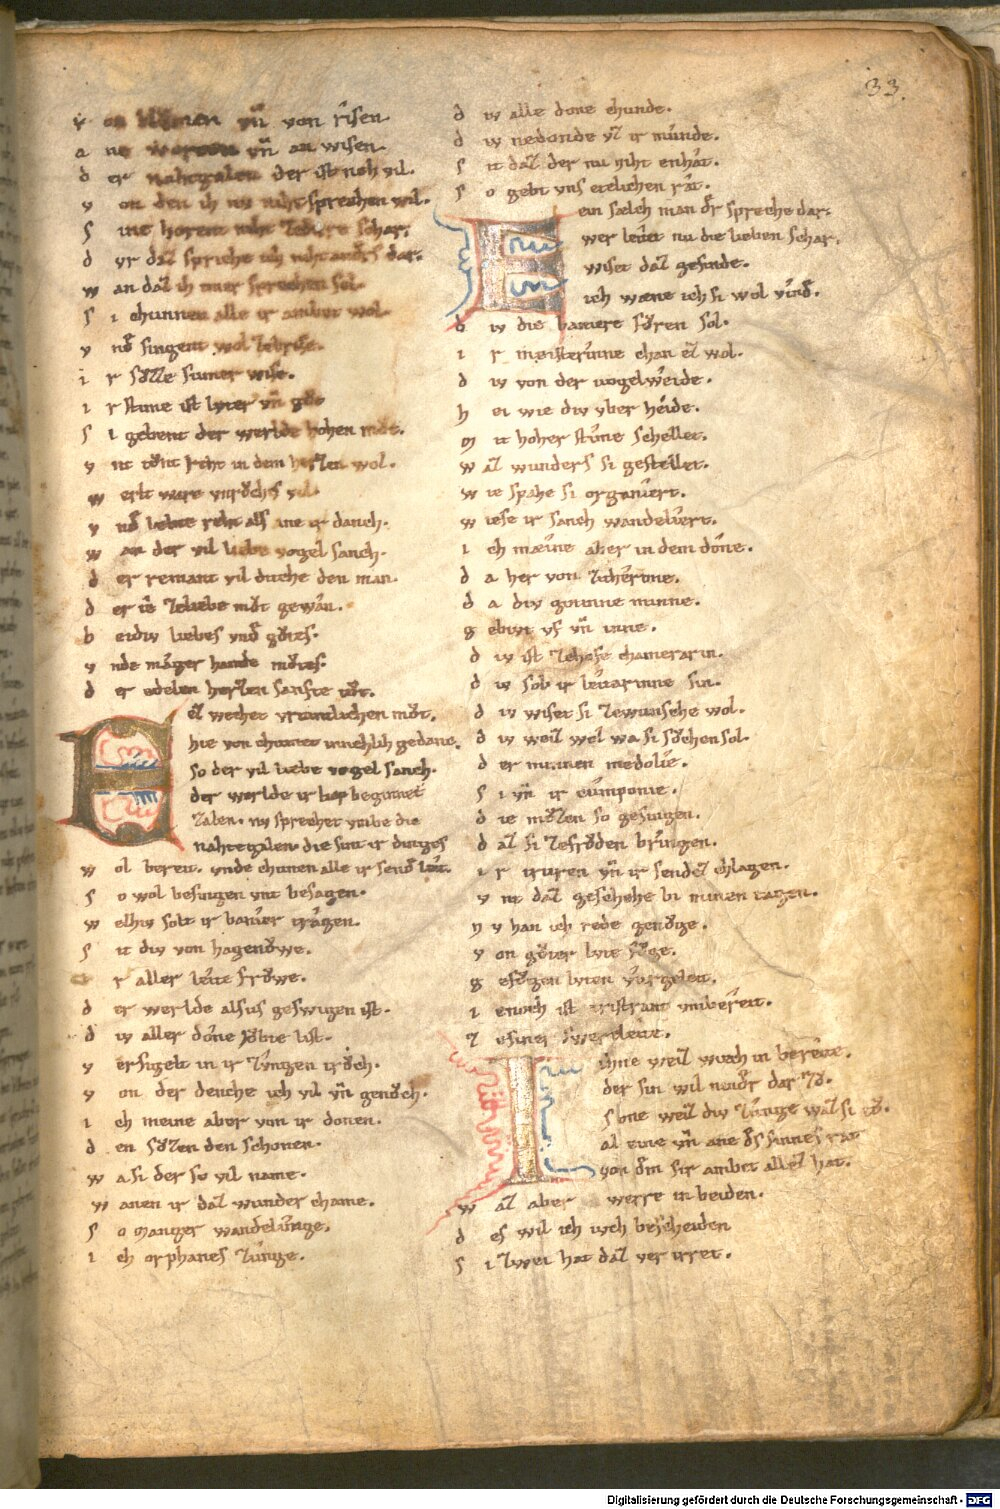 33.
v on blůmen vñ von risen
a ne warten vñ an wisen
d er nahtgalen der ist noh vil.
v on den ih nv niht sprechen wil.
s ine horent niht zebirre schar.
d vr daz spriche ich niht anders dar.
w an daz ih imer sprechen sol.
s i chunnen alle ir ambet wol.
v nd singent wol zebrise.
i r sůzze sumer wise.
i r stime ist lvter vñ gůt
s i gebent der werlde hohen můt.
v nt tůnt reht in dem herzen wol.
w erlt were vnrůches vol.
v nd lebte reht alss ane ir danch.
w an der vil liebe vogel sanch.
d er remant vil diche den man.
d er ie zeliebe můt gewan.
b eidiv liebes vnd gůtes.
v nde mæger hande můtes.
d er edelen herzen sanfte tůt.
Ez wechet vrivntlichen můt.
hie von chumet innechlich gedanc.
so der vil liebe vogel sanch.
der werlde ir liep beginnet
zalen. nv sprechet vmbe die
nahtegalen. die sint ir dinges
w ol bereit. vnde chunnen alle ir send leit.
s o wol besingen vnt besagen.
w elhiv solt ir banier tragen.
s it div von hagenowe.
i r aller leite frowe.
d er werlde alsus geswigen ist.
d iv aller done hobte list.
v ersigelt in ir zvngen trůch.
v on der denche ich vil vñ genůch.
i ch meine aber von ir donen.
d en sůzen den schonen.
w a si der so vil name.
w anen ir daz wunder chame.
s o manger wandelunge.
i ch orphanes zunge.
d iv alle done chunde.
d iv nedonde vz ir munde.
s it daz der nu niht enhat.
s o gebt vns etelichen rat.
Ein sælch man der spreche dar.
wer leitet nu die lieben schar.
wiset daz gesinde.
ich wæne ich si wol vinde.
d iv die baniere fůren sol.
i r meisterinne chan ez wol.
d iv von der vogelweide.
h ei wie div vber heide.
m it hoher stimme schellet.
w az wunders si gestellet.
w ie spahe si organiert.
w iese ir sanch wandeliert.
i ch mæine aber in dem done.
d a her von zitherone.
d a div gotinne minne.
g ebivt vf vñ inne.
d iv ist zehofe chamerarin.
d iv sol ir leitarinne sin.
d iv wiset si zewunsche wol.
d iv weiz wol wa si sůchen sol.
d er minnen medolie.
s i vñ ir cumpanie.
d ie můzen so gesingen.
d az si zefrůden bringen.
i r truren vñ ir sendez chlagen.
v nt daz geschehe bi minen tagen.
n v han ich rede genůge.
v on gůter livte fůge.
g efůgen livten vůrgeleit.
i enoch ist tristrant vmbereit.
z esiner swertleite.
Ihne weiz wiech in bereite.
der sin wil niender dar zů.
sone weiz div zunge waz si tů.
al eine vñ ane des sinnes rat
von dem sir ambet allez hat.
w az aber werre in beiden.
d es wil ich iveh bescheiden
s i zwei hat daz verirret.
Digitalisierung gefördert durch die Deutsche Forschungsgemeinschaft - DFG